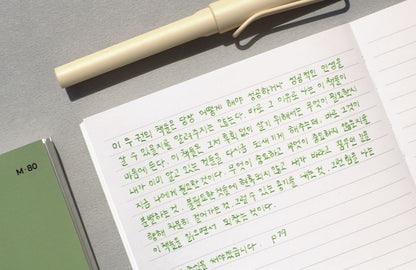 M·80
이 두 권의 책들은 당장 어떻게 해야 성공하거나 성공적인 인생을
살 수 있을지를 알려주지는 않는다. 바로 그 이유로 나는 이 책들이
마음에 든다. 이 책들은 그저 후회 없이 살기 위해서는 무엇이 필요한지
내가 이미 알고 있는 것들을 다시금 되새기게 해주는데, 바로 그것이
지금 나에게 필요한 것이다. 무엇이 중요하고 무엇이 중요하지 않은지를
분별하는 것. 불필요한 것들에 현혹되지 않고 내가 바라고 꿈꾸던 길을
향해 차분히 걸어가는 것. 그럴 수 있는 용기를 내는 것. 그런 힘을 나는
이 책들을 읽으면서 되찾는 것이다.
p.79